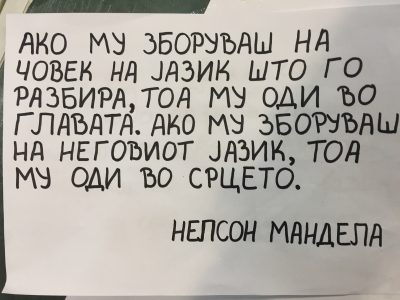 АКО МУ ЗБОРУВАШ НА
ЧОВЕК НА ЈАЗИК ШТО ГО
РАЗБИРА, ТОА МУ ОДИ ВО
ГЛАВАТА. АКО МУ ЗБОРУВАШ
НА НЕГОВИОТ ЈАЗИК, ТОА
МУ ОДИ ВО СРЦЕТО.
НЕЛСОН МАНДЕЛА